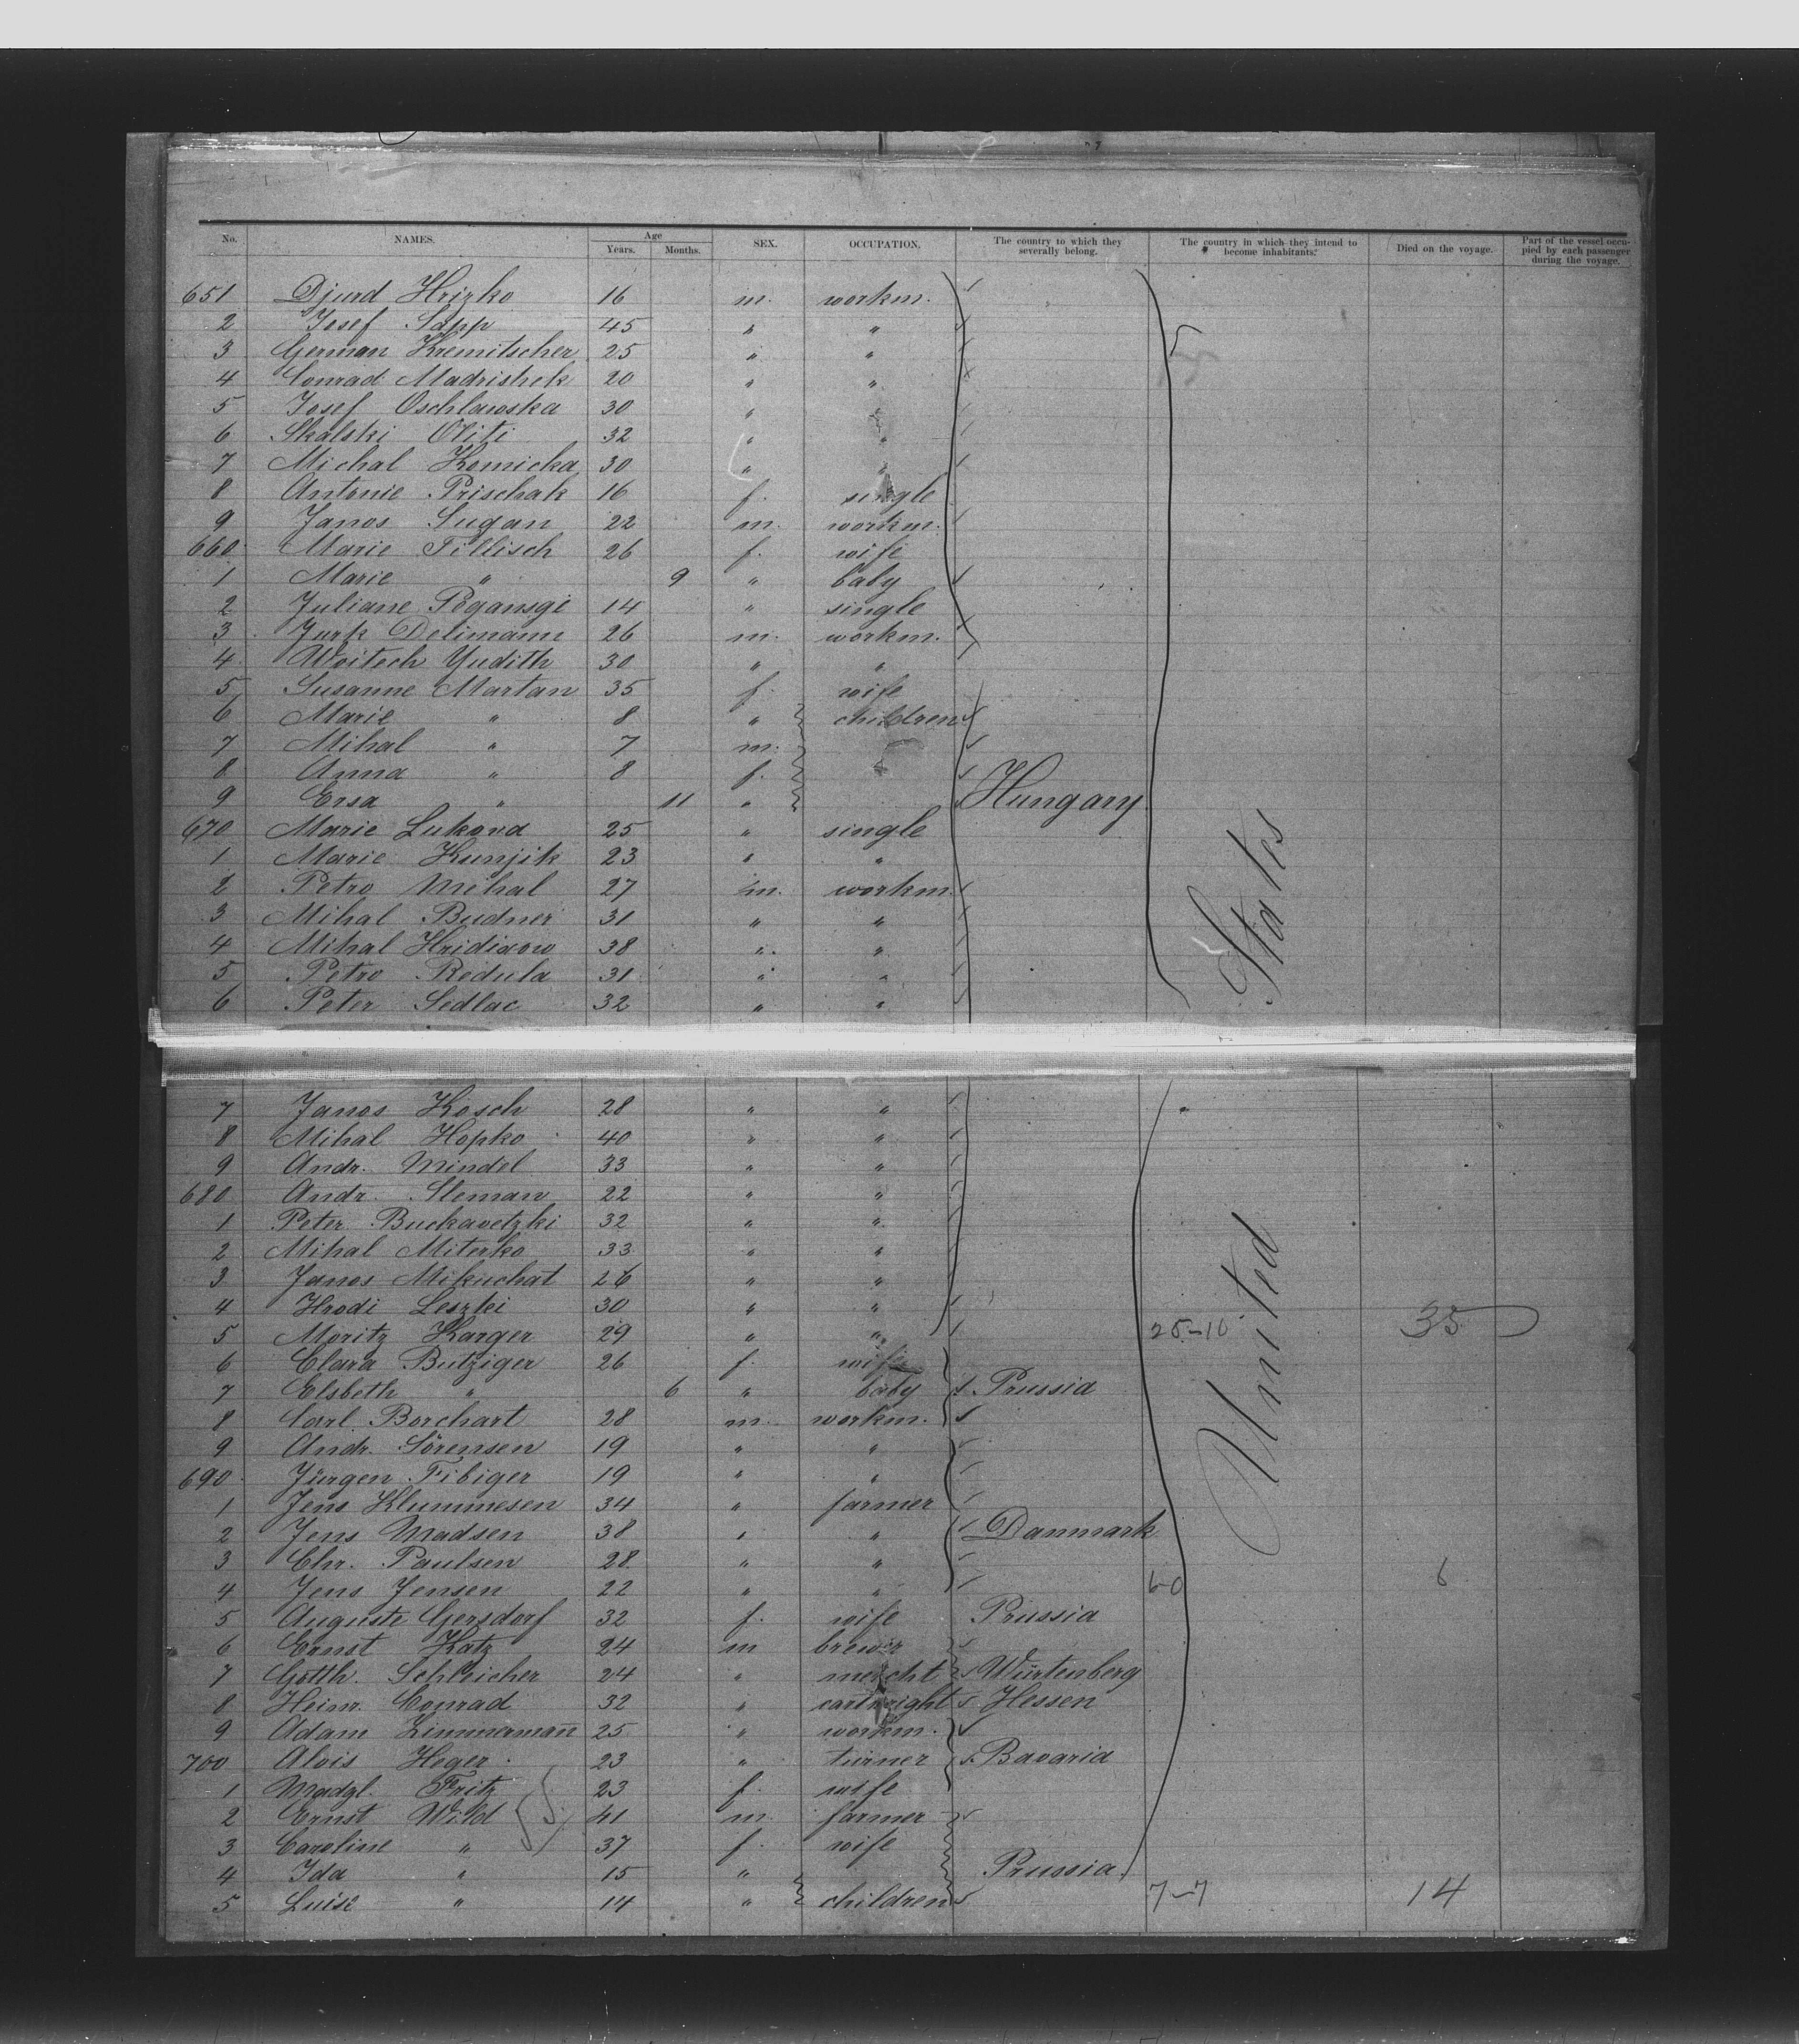 No. NAMES. Age Years. Months. SEX. OCCUPATION. The country to which they severally belong. The country in which they intend to become inhabitants. Died on the voyage. Part of the vessel occupied by each passenger during the voyage.
651 Djurd Hrizko 16 m. workm.
2 Josef Sapp 45 " "
3 German Kremitscher 25 " "
4 Conrad Madrishek 20 " "
5 Josef Oschlawska 30 " "
6 Skalski Oliti 32 " "
7 Michal Komicka 30 " "
8 Antonie Prischak 16 f. single
9 Janos Sugan 22 m. workm.
660 Marie Fillisch 26 f. wife
1 Marie " 9 " baby
2 Juliane Pogansgi 14 " single
3 Jurk Delimann 26 m. workm.
4 Woitech Yudith 30 " "
5 Susanne Martan 35 f. wife
6 Marie " 8 " children
7 Mihal " 7 m.
8 Anna " 8 f.
9 Ersa " 11 " Hungary
670 Marie Lukova 25 " single
1 Marie Kunjik 23 " "
2 Petro Mihal 27 m. workm.
3 Mihal Budner 31 " "
4 Mihal Hridiaow 38 " "
5 Petro Redula 31 " "
6 Peter Sedlac 32 " "
7 Janos Kosch 28 " "
8 Mihal Hopko 40 " "
9 Andr. Mindel 33 " "
680 Andr. Sleman 22 " "
1 Peter Buckavetzki 32 " "
2 Mihal Miterko 33 " "
3 Janos Mikuchat 26 " "
4 Hrodi Leszki 30 " "
5 Moritz Karger 29 " " 25-10 35
6 Clara Butziger 26 f. wife
7 Elsbeth " 6 " baby Prussia
8 Carl Borchart 28 m. workm.
9 Andr. Sörensen 19 " "
690 Jürgen Fibiger 19 " "
1 Jens Klummesen 34 " farmer
2 Jens Madsen 38 " " Danmark
3 Chr. Paulsen 28 " "
4 Jens Jensen 22 " " 6-0 6
5 Auguste Gersdorf 32 f. wife Prussia
6 Ernst Katz 24 m brewer
7 Gotth. Schleicher 24 " mercht Würtenberg
8 Heinr. Conrad 32 " cartwright Hessen
9 Adam Zimmermann 25 " workm.
700 Alois Heger 23 " turner Bavaria
1 Madgl. Fritz 23 f. wife
2 Ernst Wild 41 m. farmer
3 Caroline " 37 f. wife
4 Ida " 15 " Prussia
5 Luise " 14 " children 7-7 14
United States